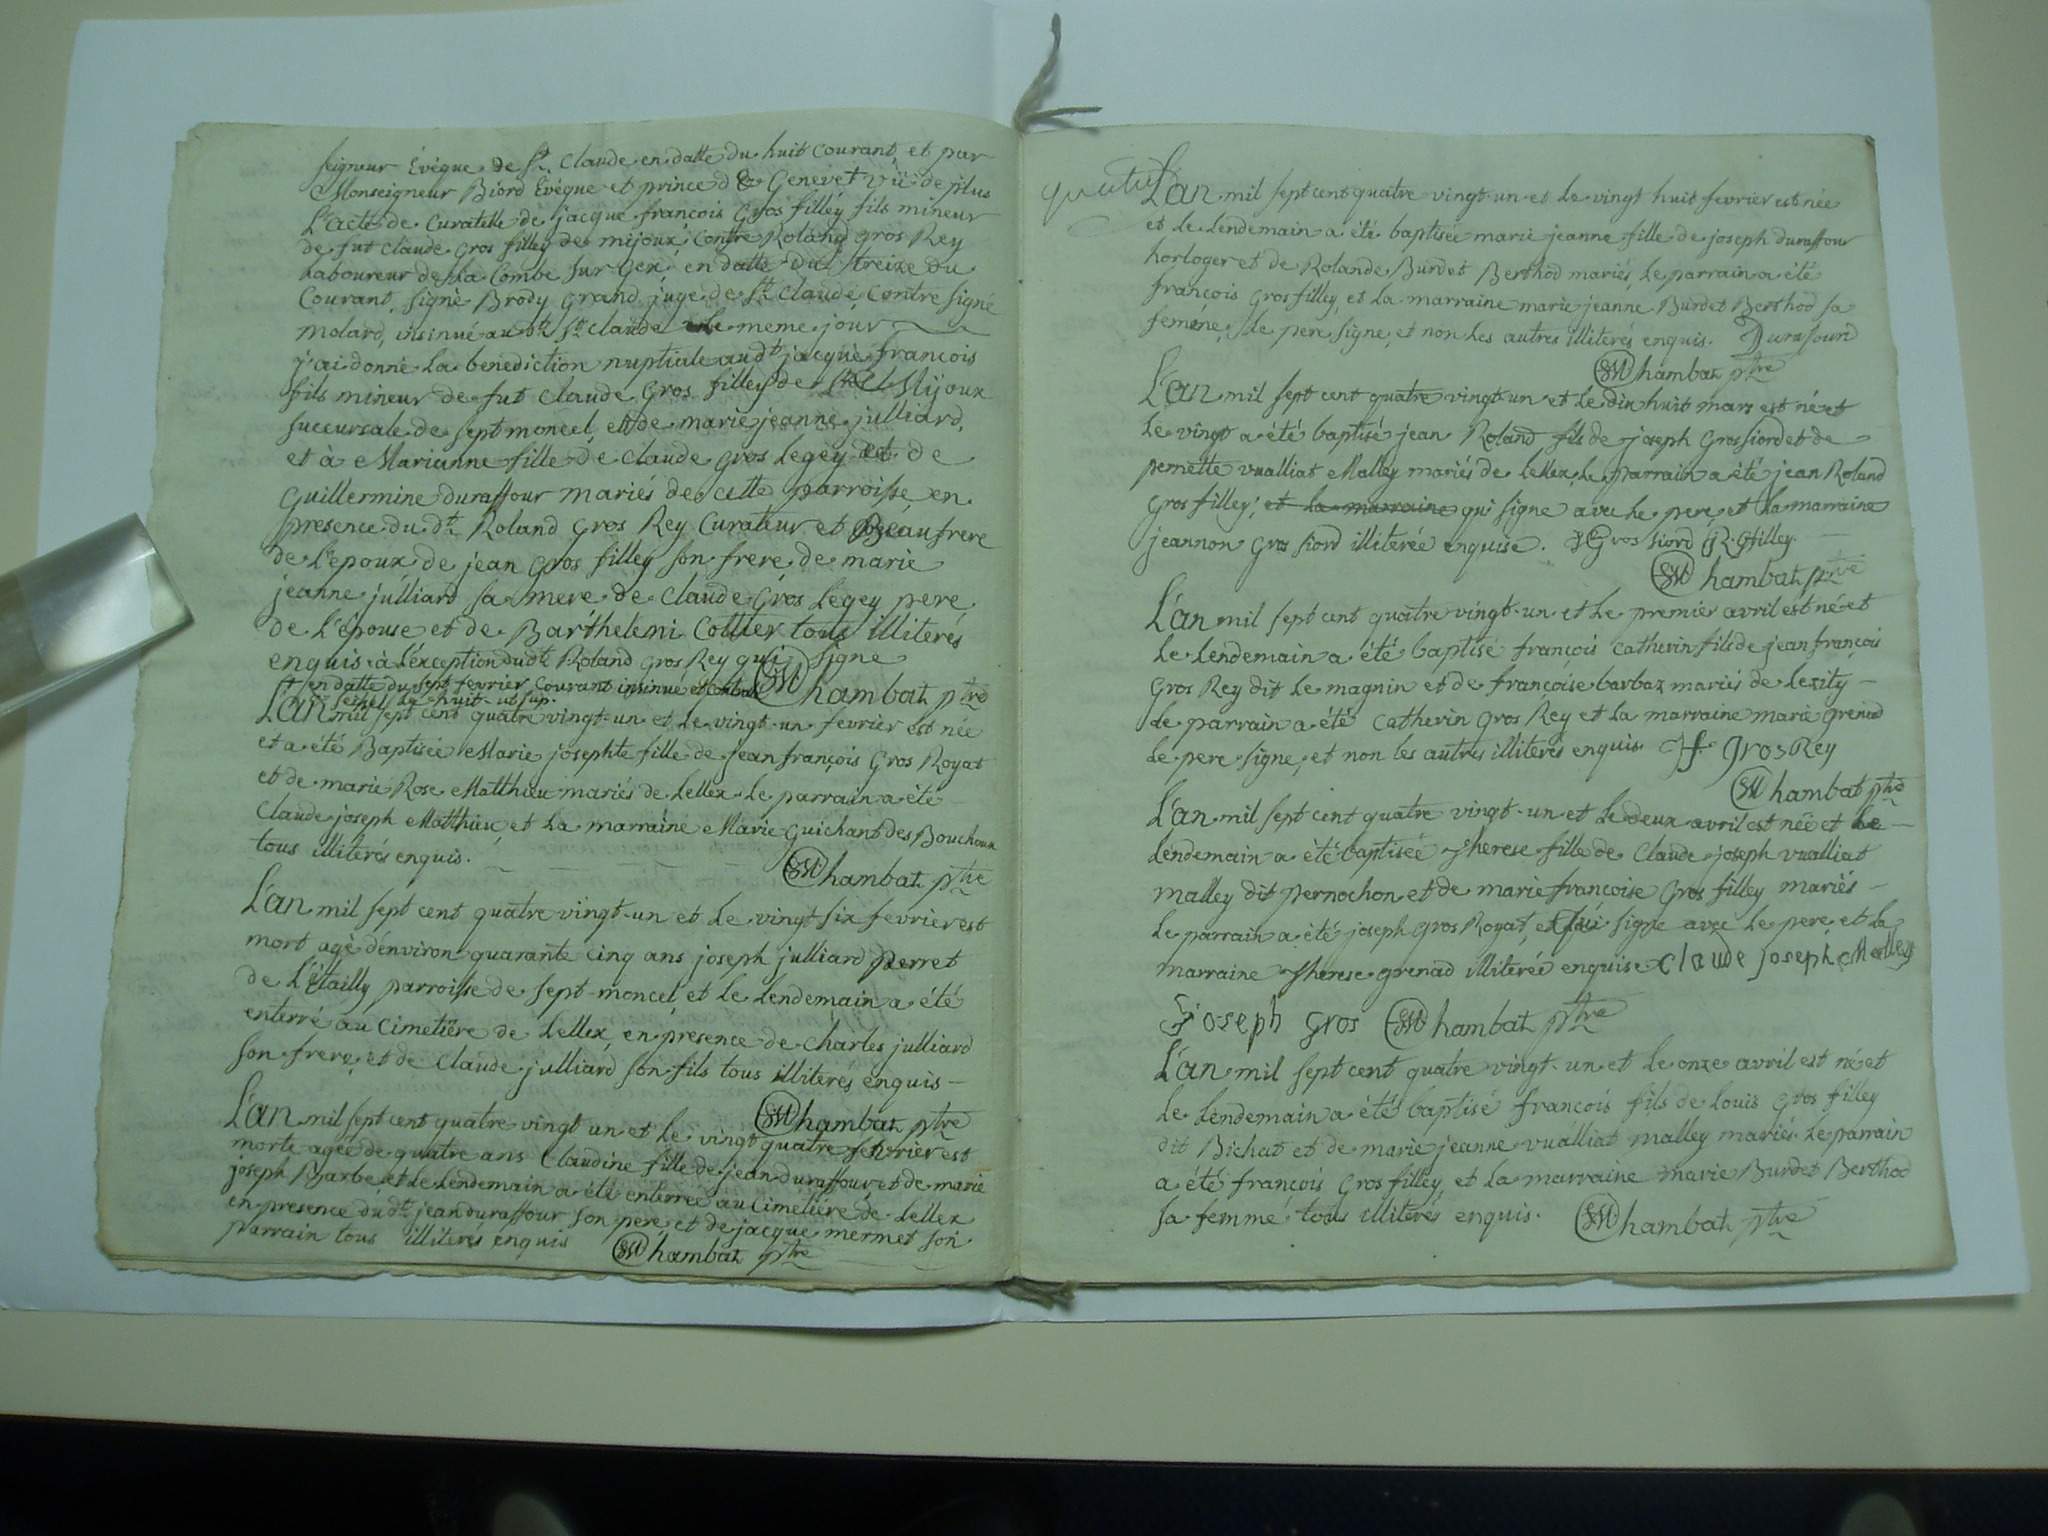 seigneur Evéque de St. Claude en datte du huit Courant, et par
Monseigneur Biord Evéque et prince de Geneve † vü de plus
L'acte de Curatelle de jacque françois Gros filley fils mineur
de fut Claude Gros filley de mijoux, Contre Roland Gros Rey
Laboureur de La Combe sur Gex, en datte du treize du
Courant, signé Brody grand juge de St. Claude, Contre signé
Molard, insinué au dt. St. Claude le meme jour
j'ai donné La benediction nuptiale audt. jacque françois
fils mineur de fut Claude Gros filley de Mijoux
succursale de sept moncel, et de marie jeanne julliard,
et à Marianne fille de Claude Gros Legey et de
Guillermine duraffour mariés de cette parroisse en
presence du dt. Roland Gros Rey Curateur et Beaufrere
de L'epoux de jean Gros filley son frere de marie
jeanne julliard sa mere de Claude Gros Legey pere
de L'épouse et de Barthelemi Collier tous illiterés
enquis à L'exception dudt. Roland Gros Rey qui signe
† en datte du sept fevrier Courant insinué et
le huit ut sup. Chambat ptre
L'an mil sept cent quatre vingt-un et Le vingt-un fevrier est née
et a été Baptisée Marie josephte fille de jean françois Gros Royat
et de marie Rose Matthieu mariés de Lellex Le parrain a été
Claude joseph Matthieu et La marraine Marie Guichant des Bouchoux
tous illiterés enquis.
Chambat ptre
L'an mil sept cent quatre vingt-un et Le vingt six fevrier est
mort agé d'environ quarante cinq ans joseph julliard perret
de L'Étailly parroisse de sept-moncel, et Le Lendemain a été
enterré au Cimetiére de Lellex, en presence de Charles julliard
son frere, et de Claude julliard son fils tous illiterés enquis
Chambat ptre
L'an mil sept cent quatre vingt un et Le vingt quatre fevrier est
morte agée de quatre ans Claudine fille de jean duraffour et de marie
joseph Barbe, et Le Lendemain a été enterrée au Cimetiére de Lellex
en presence dudt. jean duraffour son pere, et de jacque mermet son
parrain tous illiterés enquis Chambat ptre
L'an mil sept cent quatre vingt-un et Le vingt huit fevrier est née
et Le Lendemain a été baptisée marie jeanne fille de joseph duraffour
horloger et de Rolande Burdet Berthod mariés, Le parrain a été
françois Gros filley, et La marraine marie jeanne Burdet Berthod sa
femme, Le pere signe, et non Les autres illiterés enquis. Durafourd
Chambat ptre
L'an mil sept cent quatre vingt-un et Le dix huit mars est né et
Le vingt a été baptisé jean Roland fils de joseph Gros fiord et de
pernette vualliat Malley mariés de Lellex, Le parrain a été jean Roland
Gros filley, et la marraine qui signe avec Le pere, et La marraine
jeannon Gros fiord illiterée enquise. J Gros fiord J R. Gfilley
Chambat ptre
L'an mil sept cent quatre vingt-un et Le premier avril est né et
Le Lendemain a été baptisé françois Catherin fils de jean françois
Gros Rey dit Le magnin et de françoise barbaz mariés de Lezity
Le parrain a été Catherin Gros Rey et La marraine marie Grenod
Le pere signe, et non les autres illiterés enquis. Jf Gros Rey
Chambat ptre
L'an mil sept cent quatre vingt-un et Le deux avril est née et Le
Lendemain a été baptisée Therese fille de Claude joseph vualliat
malley dit pernochon et de marie françoise Gros filley mariés
Le parrain a été joseph Gros Royat, qui signe avec Le pere, et La
marraine Therese Grenod illiterée enquise Claude joseph Malley
joseph Gros Chambat ptre
L'an mil sept cent quatre vingt-un et Le onze avril est né et
Le Lendemain a été baptisé françois fils de Louis Gros filley
dit Bichat et de marie jeanne vualliat malley mariés. Le parrain
a été françois Gros filley, et La marraine marie Burdet Berthod
sa femme tous illiterés enquis. Chambat ptre